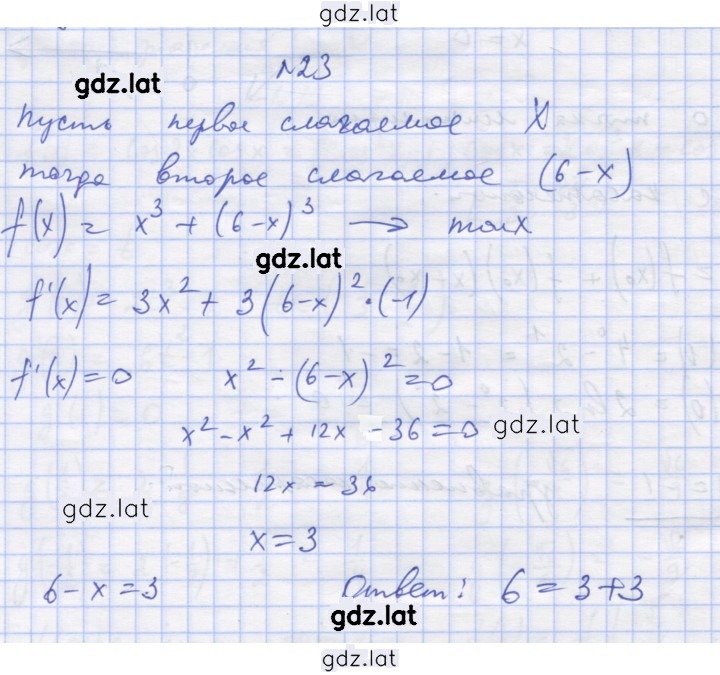 gdz.lat
№23
gdz.lat
Пусть первое слагаемое X
тогда второе слагаемое (6-x)
f(x) = x³ + (6-x)³ → max
gdz.lat
f'(x) = 3x² + 3(6-x)²·(-1)
f'(x) = 0 x² - (6-x)² = 0
x² - x² + 12x - 36 = 0 gdz.lat
12x = 36
gdz.lat
x = 3
6 - x = 3 Ответ: 6 = 3+3
gdz.lat
gdz.lat